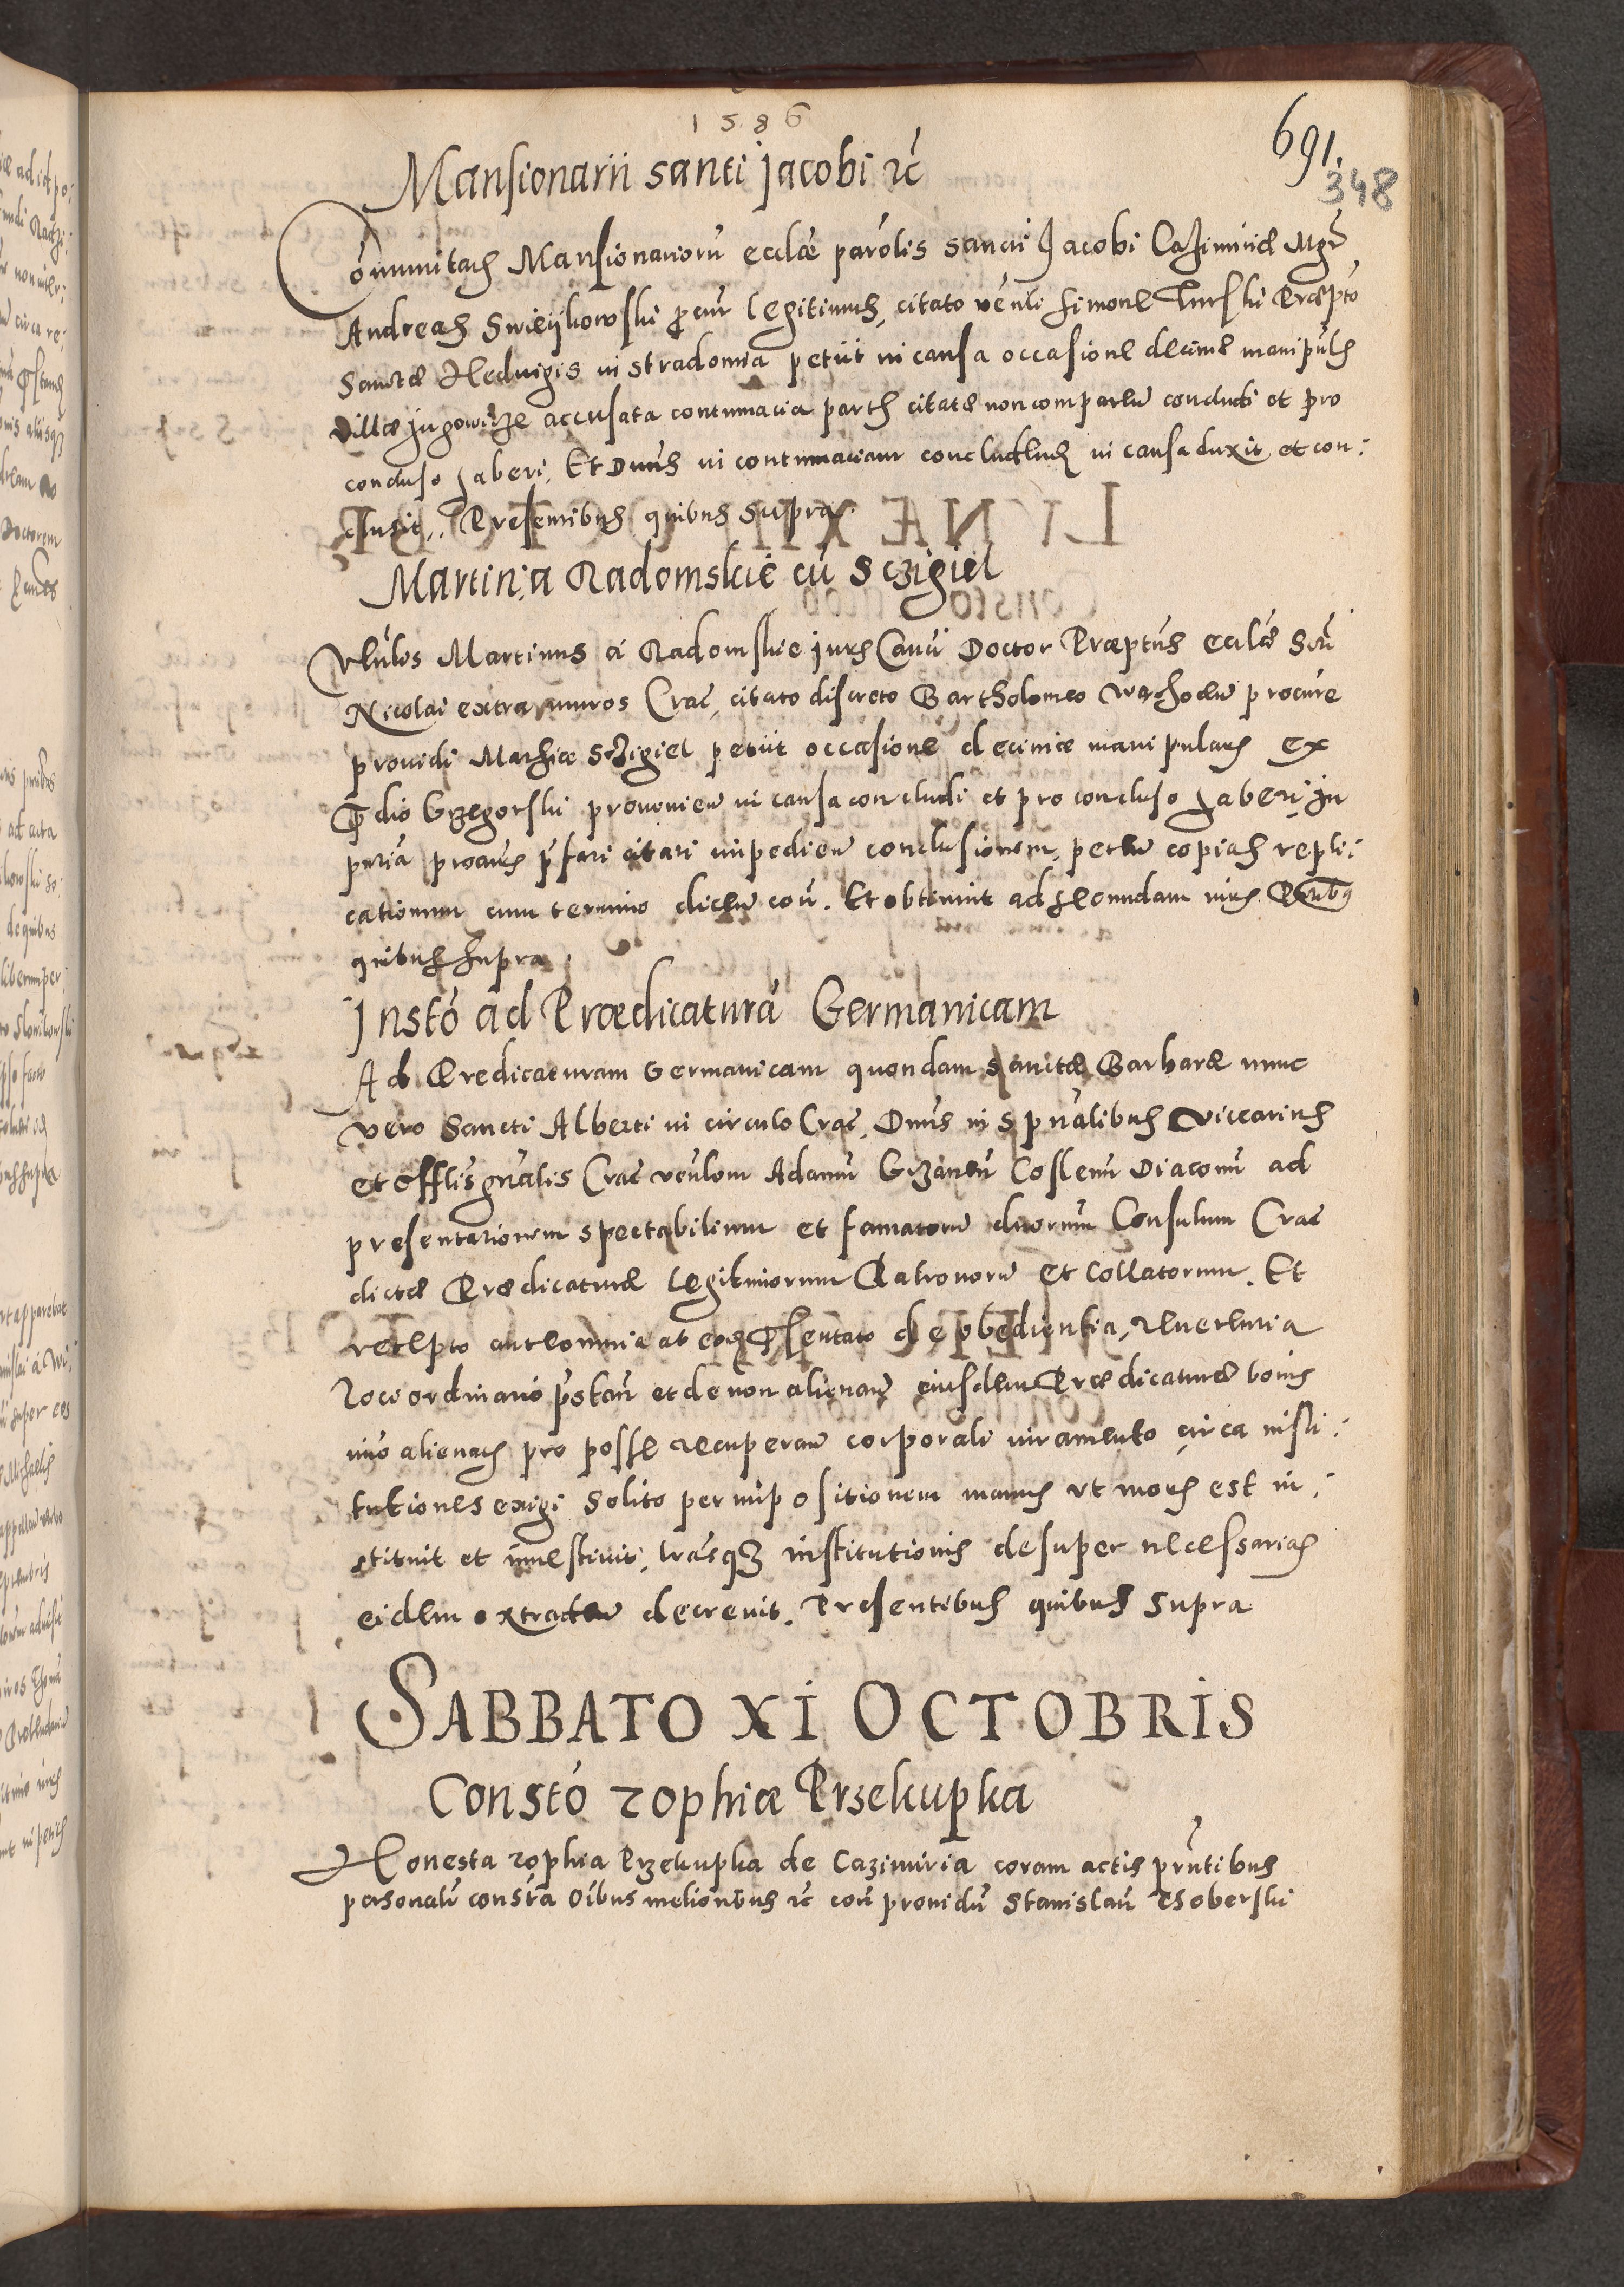 1586
691.
348
Mansionarii sancti Jacobi rc
Cōmunitatis Mansionariorū ecclae parōlis sancti Jacobi Cazimirie Mgr
Andreas Swieykowski procur legitimus, citato venli Simone Turski Præpto
Sanctæ Hedvigis in Stradomia petiit in causa occasione decime manipulis
villæ Jugowicze accusata contumacia partis citatæ non comparen concludi et pro
concluso haberi, Et Dnus in contumaciam concludendū in causa duxit et con:
clusit. Presentibus quibus supra
Martin: a Radomskie cū Sczigiel
Vlulis Martinus à Radomskie juris Canci Doctor Præptus ecclæ Scti
Nicolai extra muros Crac, citato discreto Bartholomeo procure
providi Mathiæ Sczigiel petiit occasione decimæ manipularis ex
prdio Grzegorski provenien in causa concludi et pro concluso haberi, In
pntia procuris pfati citati impedien conclusionem, peten copias repli:
cationum cum termino dicen con. Et obtinuit ad secundam iuris Pntibus
quibus supra
Instō ad Prædicaturā Germanicam
Ad Predicaturam Germanicam quondam Sanctæ Barbaræ nunc
vero Sancti Alberti in circulo Crac, Dnus in spūalibus Viccarius
et Offlis gnalis Crac Adamū Diaconū ad
presentationem spectabilium et famatorū duorum Consulum Crac
dictæ Prædicaturæ legitimorum Patronorū et Collatorum. Et
recepto ante omnia ab eodē psentato de obedientia, reverentia
loco ordinario pstan et de non alienan eiusdem Prædicaturæ bonis
imo alienatis pro posse recuperan corporali iuramento circa insti:
tutiones exigi solito per impositionem manus ut moris est in:
stituit et investivit, lrasqz institutionis desuper necessarias
eidem extraden decrevit. Presentibus quibus supra
SABBATO XI OCTOBRIS
Constō Zophiæ Przekupka
Honesta Zophia Przekupka de Cazimiria coram actis prntibus
personalr constta oibus melioribus rc con providū Stanislaū